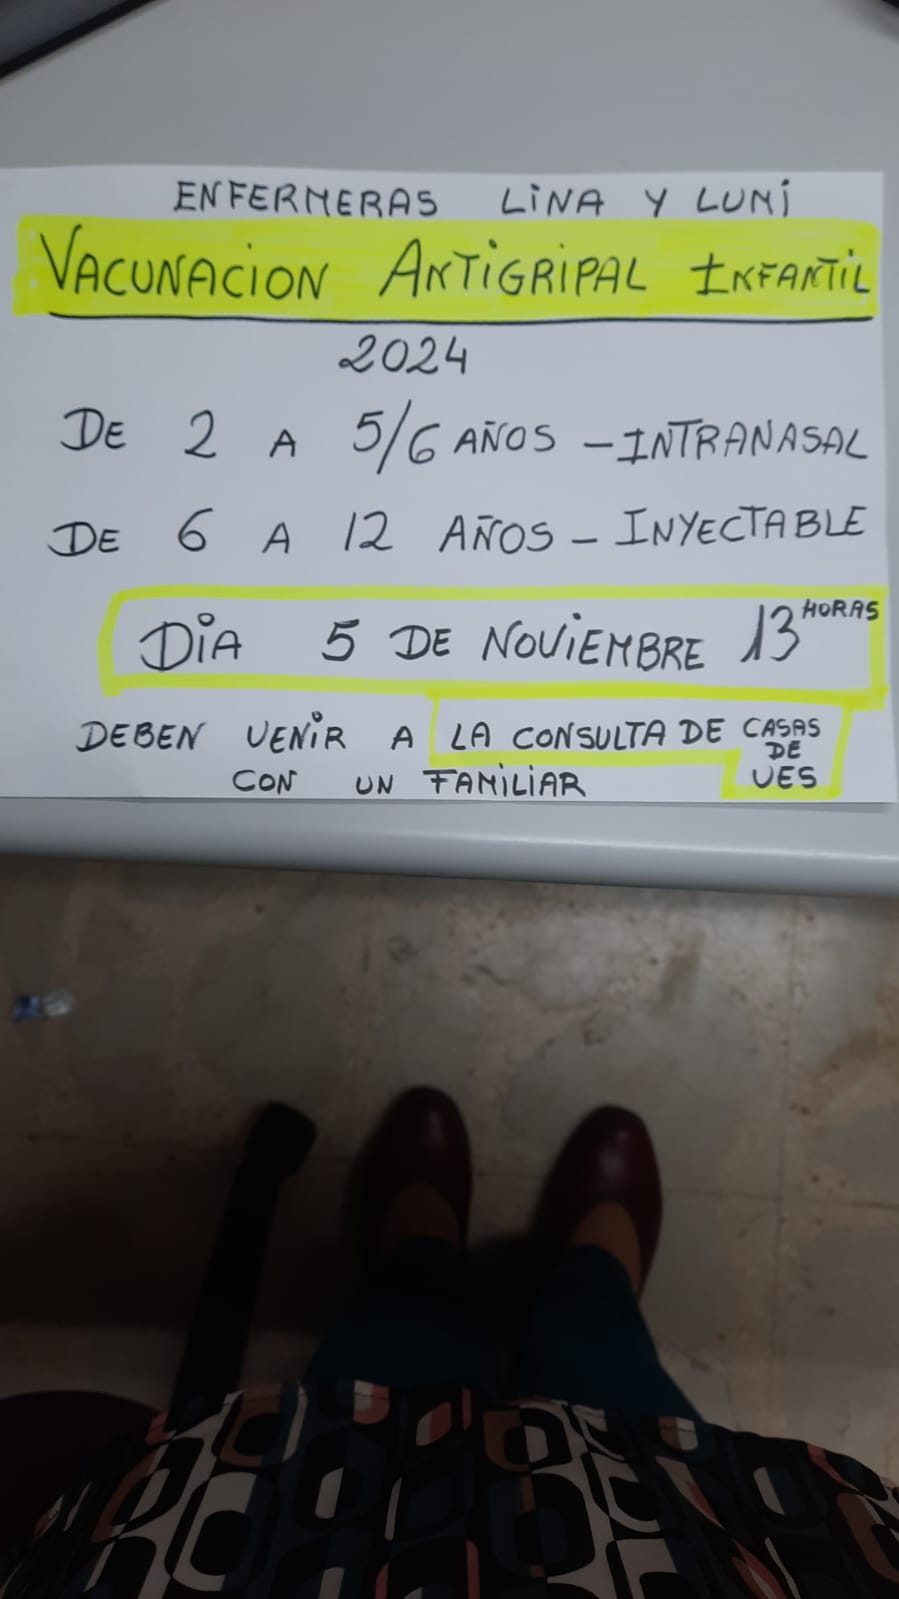 ENFERMERAS LINA Y LUMI
VACUNACION ANTIGRIPAL INFANTIL
2024
DE 2 A 5/6 AÑOS - INTRANASAL
DE 6 A 12 AÑOS - INYECTABLE
DIA 5 DE NOVIEMBRE 13 HORAS
DEBEN VENIR A LA CONSULTA DE CASAS DE VES
CON UN FAMILIAR